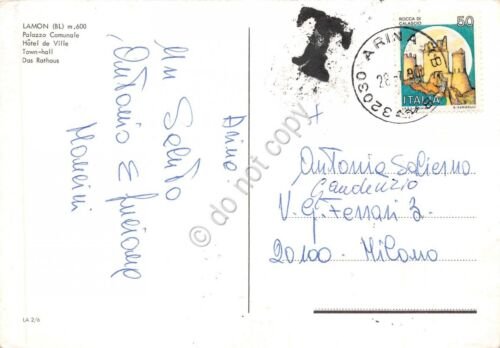 LAMON (BL) m. 600
Palazzo Comunale
Hôtel de Ville
Town-hall
Das Rathaus
Arina
Un Saluto
Antonio E
Mancini
LA 2/6
T
32030 ARINA
28
ROCCA DI
CALASCIO
50
ITALIA
Antonia Salierno
Gaudenzio
V. G. Ferrari 3
20100 - Milano
© do not copy